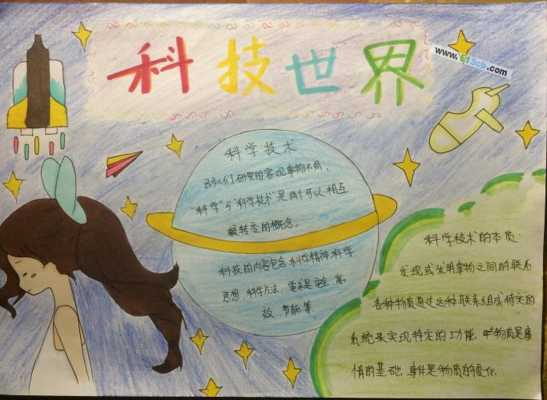 科技世界
科学技术
研究的客观事物不同,
“科学”与“科学技术”是两个可以相互
转变的概念。
科技的内容包含 科学精神 科学
思想 科学方法
科学技术的本质:
发现或发明事物之间的联系
各种物质通过这种联系组成特定的
系统来实现特定的功能
情的基础 事件是物质的变化